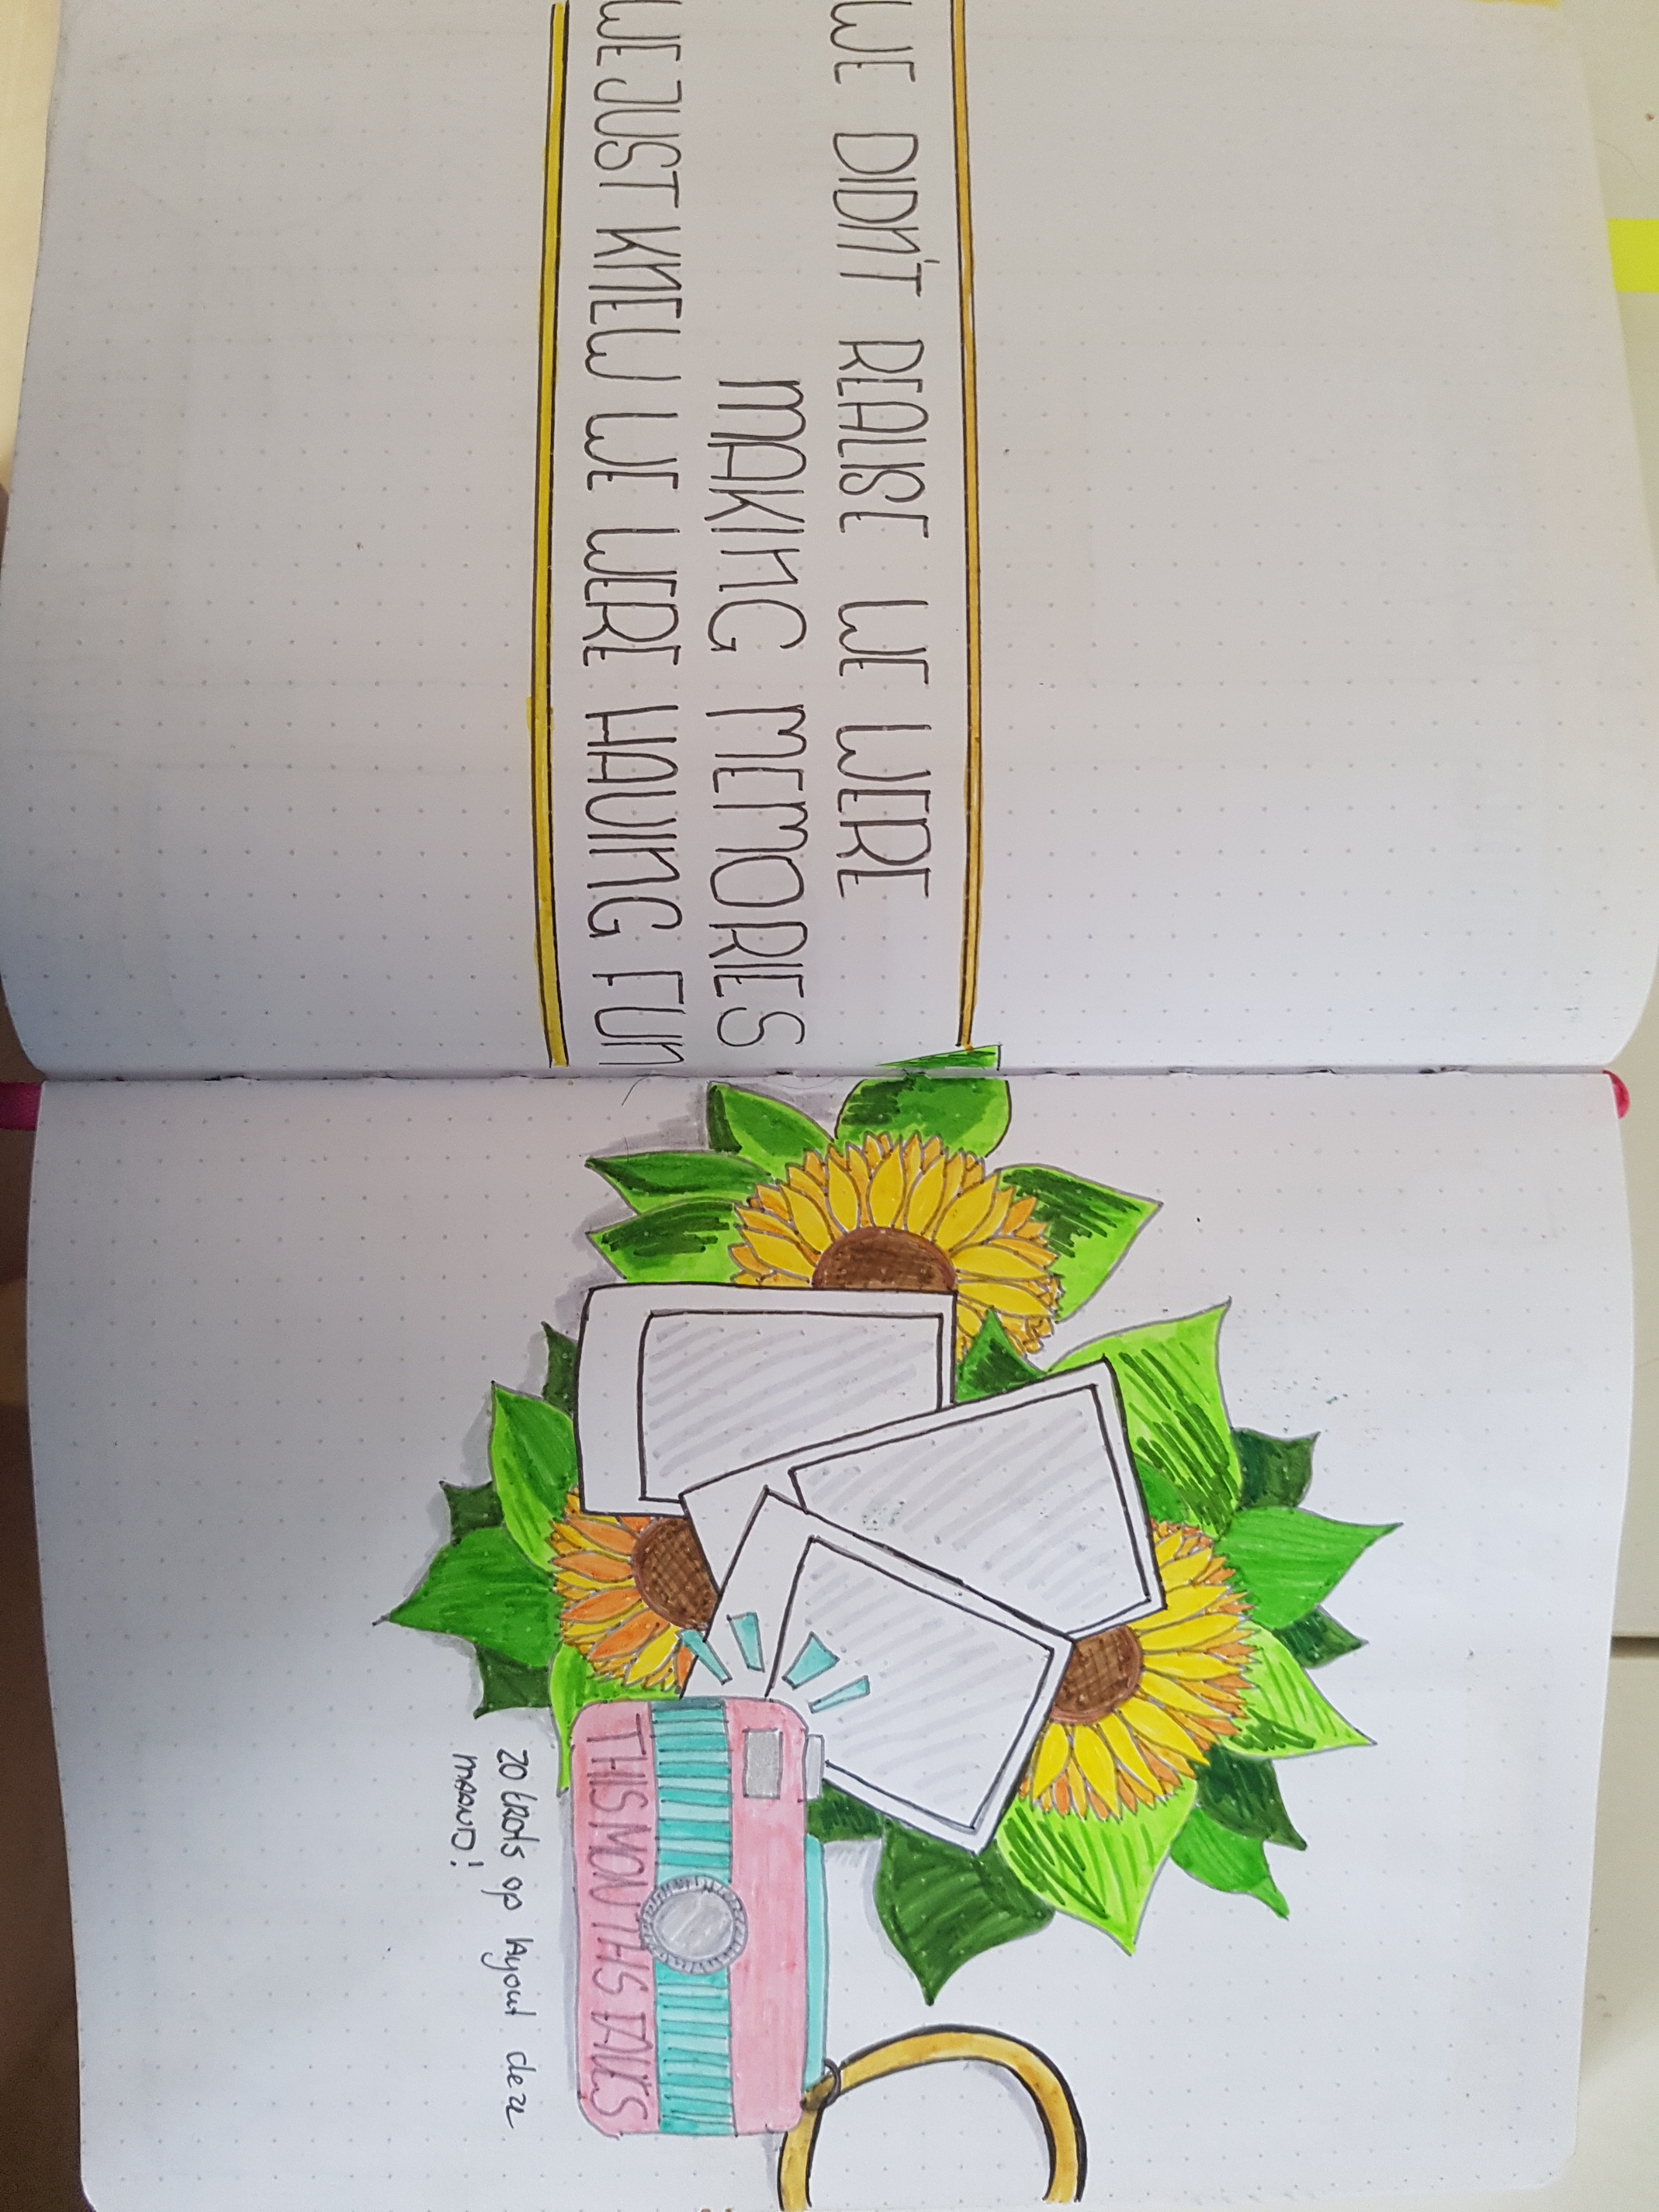 WE DIDN'T REALISE WE WERE
MAKING MEMORIES
WE JUST KNEW WE WERE HAVING FUN
THIS MONTHS FAVES
ZO trots op layout deze
MAAND!